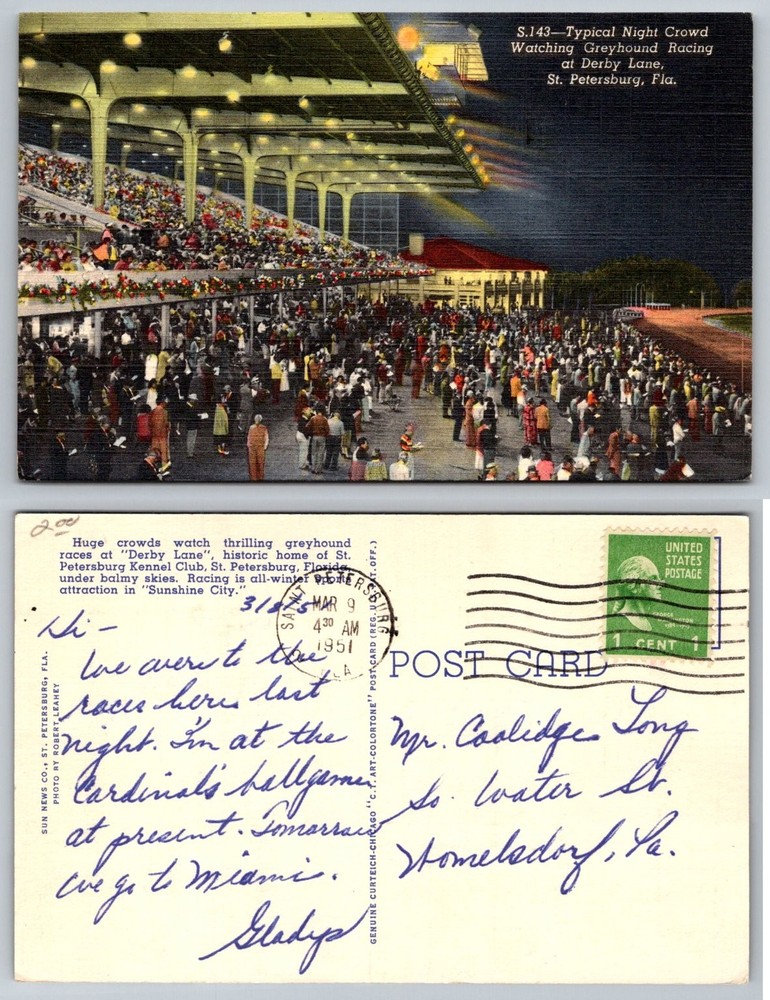 S.143—Typical Night Crowd
Watching Greyhound Racing
at Derby Lane,
St. Petersburg, Fla.
2.00
Huge crowds watch thrilling greyhound
races at "Derby Lane", historic home of St.
Petersburg Kennel Club, St. Petersburg, Florida,
under balmy skies. Racing is all-winter sport
attraction in "Sunshine City."
SAINT PETERSBURG
MAR 9
4 30 AM
1951
LA
UNITED
STATES
POSTAGE
1 CENT 1
POST CARD
Hi —
We were to the
races here last
night. I'm at the
Cardinal's ballgame
at present. Tomorrow
we go to Miami.
Gladys
Mr. Coolidge Long
So. Water St.
Womelsdorf, Pa.
SUN NEWS CO., ST. PETERSBURG, FLA.
PHOTO BY ROBERT LEAHEY
GENUINE CURTEICH-CHICAGO "C.T. ART-COLORTONE" POST CARD (REG. U.S. PAT. OFF.)